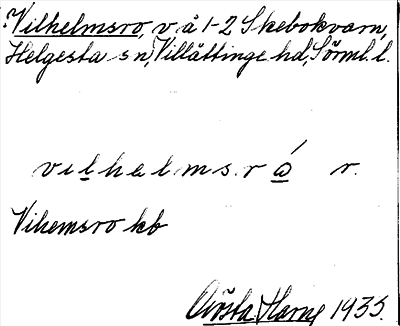 :Vilhelmsro, v å 1-2 Skebokvarn,
Helgesta sn, Villåttinge hd, Sörml. l.
vilhelmsrώ r.
Vihemsro kb
Gösta Harne 1935.